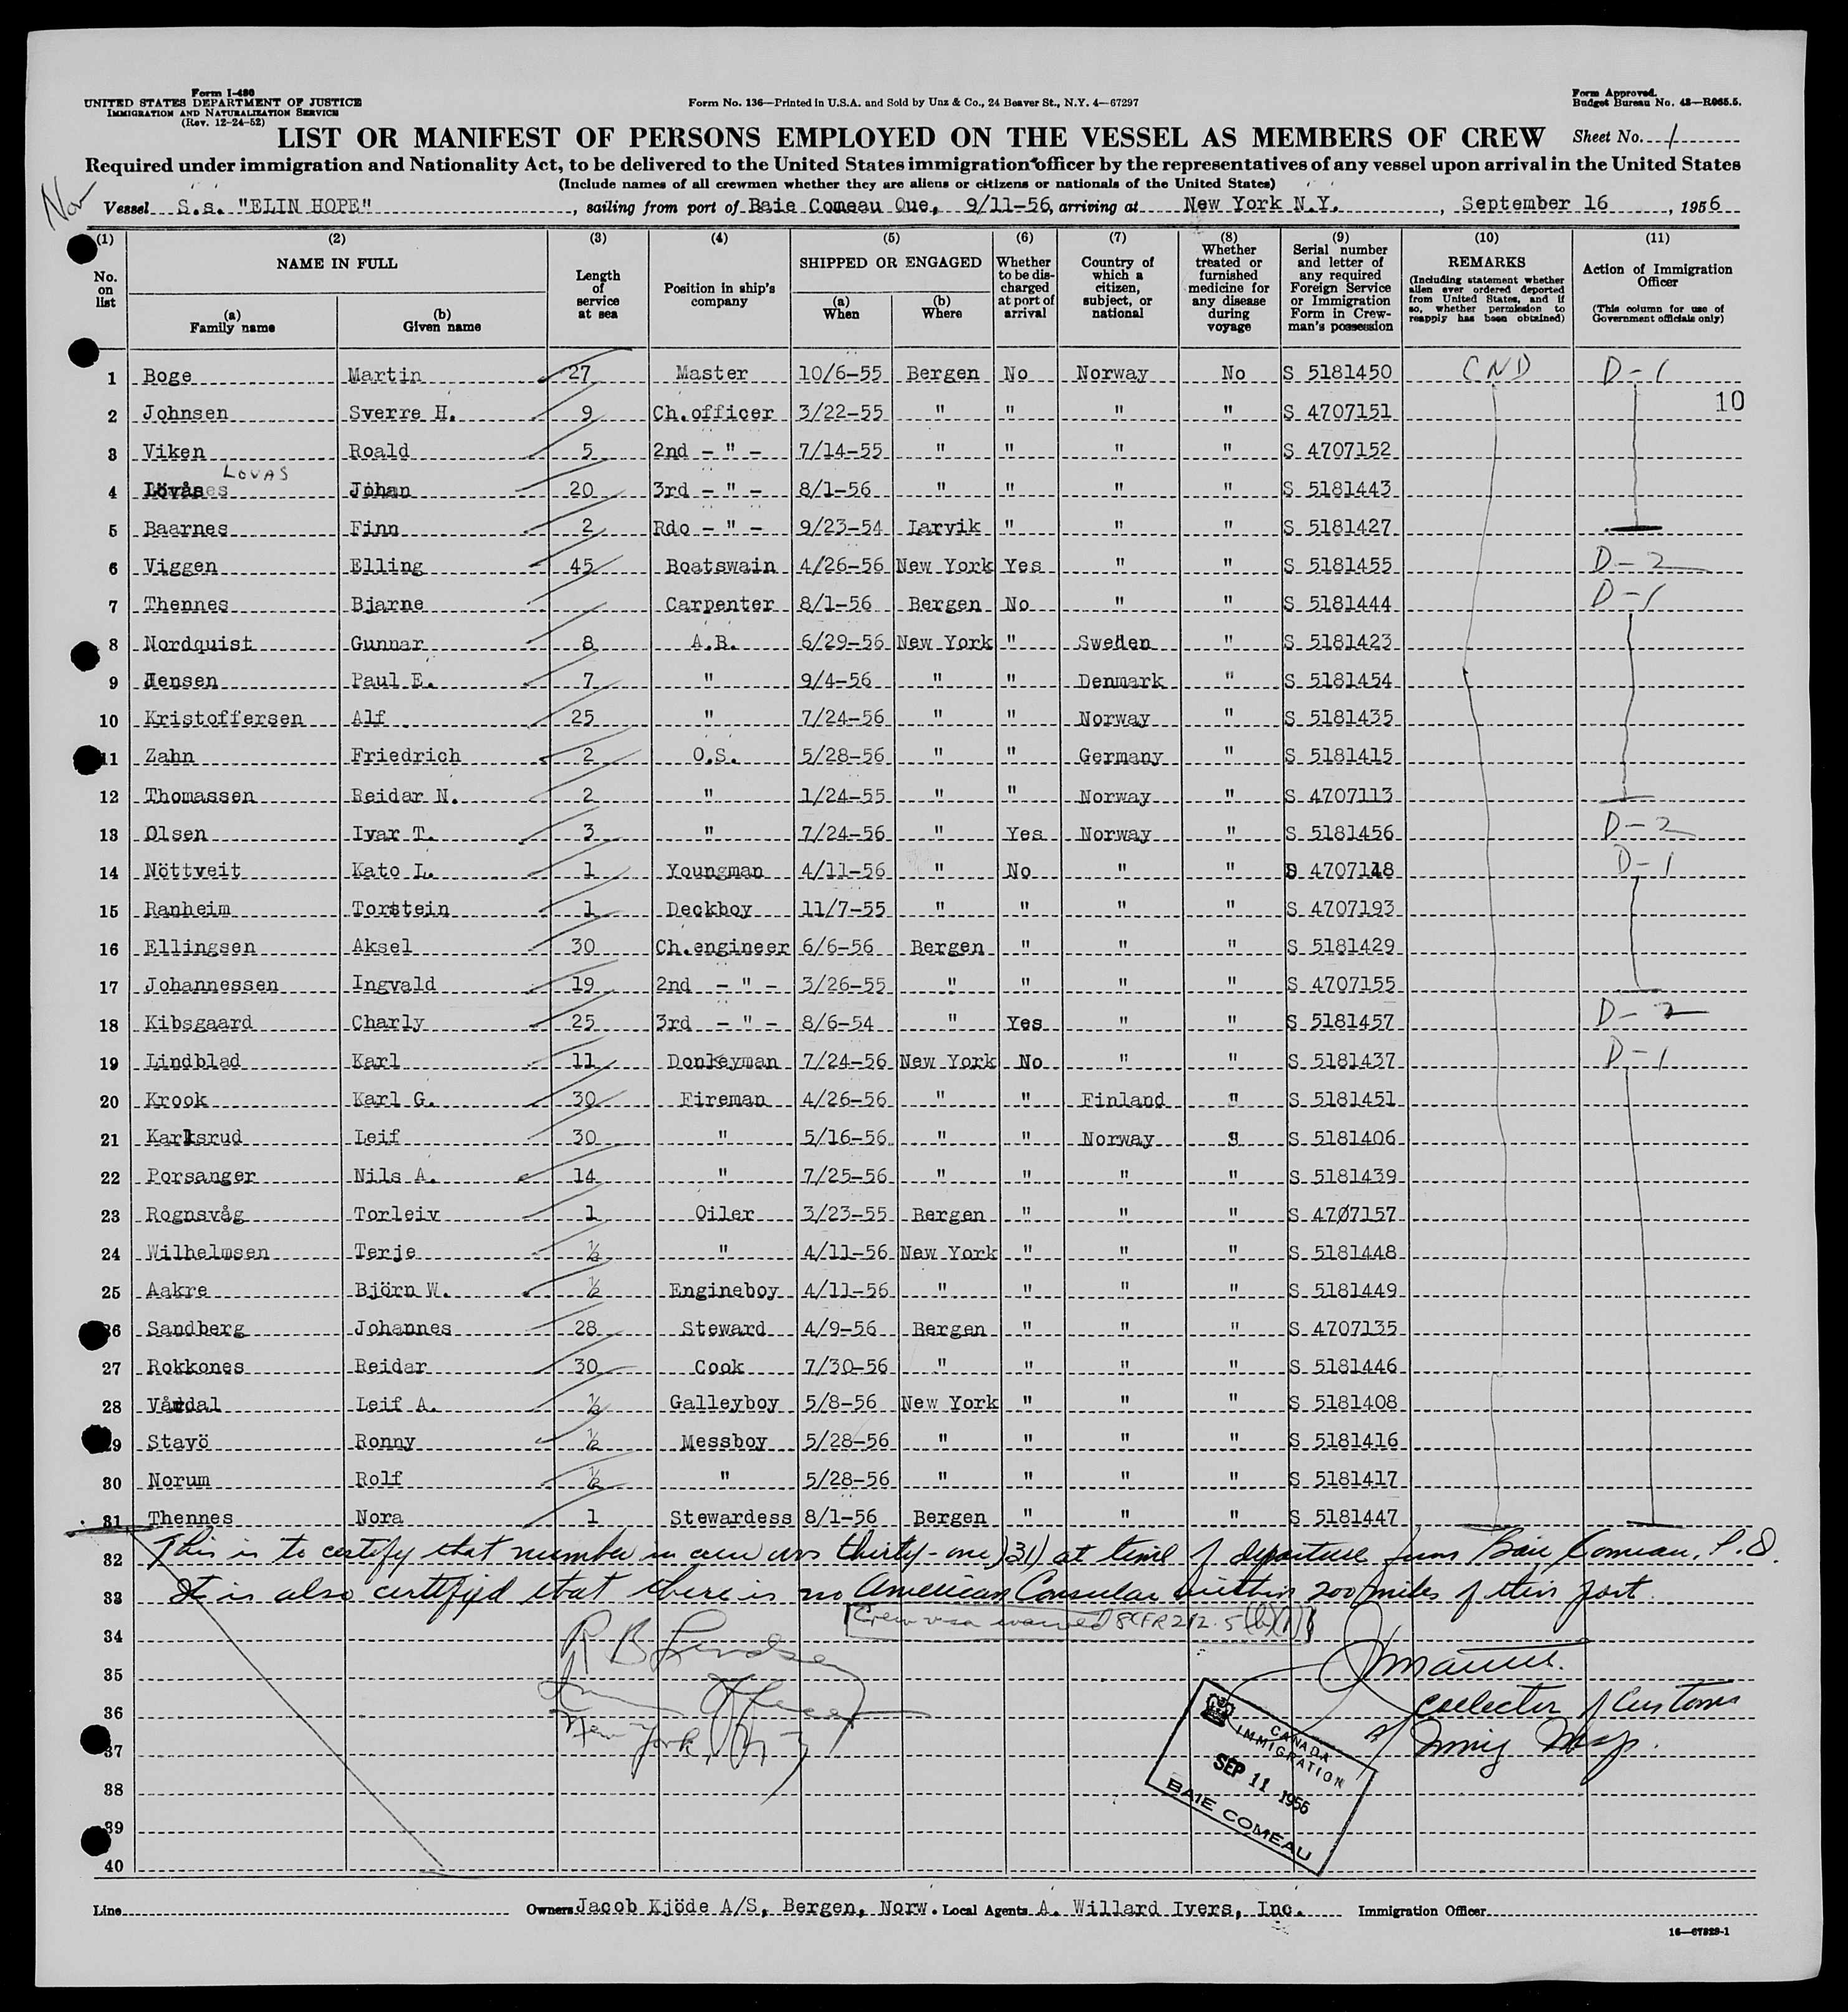 Form I-480
UNITED STATES DEPARTMENT OF JUSTICE
IMMIGRATION AND NATURALIZATION SERVICE
(Rev. 12-24-52)
Form No. 136—Printed in U.S.A. and Sold by Unz & Co., 24 Beaver St., N.Y. 4—67297
Form Approved.
Budget Bureau No. 43—R065.5.
LIST OR MANIFEST OF PERSONS EMPLOYED ON THE VESSEL AS MEMBERS OF CREW Sheet No. 1
Required under immigration and Nationality Act, to be delivered to the United States immigration officer by the representatives of any vessel upon arrival in the United States
(Include names of all crewmen whether they are aliens or citizens or nationals of the United States)
Nor
Vessel S.s. "ELIN HOPE", sailing from port of Baie Comeau Que, 9/11-56, arriving at New York N.Y., September 16, 1956
(1) (2) (3) (4) (5) (6) (7) (8) (9) (10) (11)
No. on list
NAME IN FULL
(a) Family name
(b) Given name
Length of service at sea
Position in ship's company
SHIPPED OR ENGAGED
(a) When
(b) Where
Whether to be discharged at port of arrival
Country of which a citizen, subject, or national
Whether treated or furnished medicine for any disease during voyage
Serial number and letter of any required Foreign Service or Immigration Form in Crewman's possession
REMARKS
(Including statement whether alien ever ordered deported from United States, and if so, whether permission to reapply has been obtained)
Action of Immigration Officer
(This column for use of Government officials only)
1 Boge Martin 27 Master 10/6-55 Bergen No Norway No S 5181450 CND D-1
10
2 Johnsen Sverre H. 9 Ch.officer 3/22-55 " " " " S 4707151
3 Viken Roald 5 2nd - " - 7/14-55 " " " " S 4707152
LOVAS
4 Lövåses Johan 20 3rd - " - 8/1-56 " " " " S 5181443
5 Baarnes Finn 2 Rdo - " - 9/23-54 Larvik " " " S 5181427
6 Viggen Elling 45 Boatswain 4/26-56 New York Yes " " S 5181455 D-2
7 Thennes Bjarne Carpenter 8/1-56 Bergen No " " S 5181444 D-1
8 Nordquist Gunnar 8 A.B. 6/29-56 New York " Sweden " S 5181423
9 Jensen Paul E. 7 " 9/4-56 " " Denmark " S 5181454
10 Kristoffersen Alf 25 " 7/24-56 " " Norway " S 5181435
11 Zahn Friedrich 2 O.S. 5/28-56 " " Germany " S 5181415
12 Thomassen Reidar N. 2 " 1/24-55 " " Norway " S 4707113
13 Olsen Ivar T. 3 " 7/24-56 " Yes Norway " S 5181456 D-2
14 Nöttveit Kato L. 1 Youngman 4/11-56 " No " " S 4707118 D-1
15 Ranheim Torstein 1 Deckboy 11/7-55 " " " " S 4707193
16 Ellingsen Aksel 30 Ch.engineer 6/6-56 Bergen " " " S 5181429
17 Johannessen Ingvald 19 2nd - " - 3/26-55 " " " " S 4707155
18 Kibsgaard Charly 25 3rd - " - 8/6-54 " Yes " " S 5181457 D-2
19 Lindblad Karl 11 Donkeyman 7/24-56 New York No " " S 5181437 D-1
20 Krook Karl G. 30 Fireman 4/26-56 " " Finland " S 5181451
21 Karlsrud Leif 30 " 5/16-56 " " Norway " S 5181406
22 Porsanger Nils A. 14 " 7/25-56 " " " " S 5181439
23 Rognsvåg Torleiv 1 Oiler 3/23-55 Bergen " " " S 4707157
24 Wilhelmsen Terje ½ " 4/11-56 New York " " " S 5181448
25 Aakre Björn W. ½ Engineboy 4/11-56 " " " " S 5181449
26 Sandberg Johannes 28 Steward 4/9-56 Bergen " " " S 4707135
27 Rokkones Reidar 30 Cook 7/30-56 " " " " S 5181446
28 Vårdal Leif A. ½ Galleyboy 5/8-56 New York " " " S 5181408
29 Stavö Ronny ½ Messboy 5/28-56 " " " " S 5181416
30 Norum Rolf ½ " 5/28-56 " " " " S 5181417
31 Thennes Nora 1 Stewardess 8/1-56 Bergen " " " S 5181447
32 This is to certify that number in crew was thirty-one (31) at time of departure from Baie Comeau, P.Q.
33 It is also certified that there is no American Consular within 200 miles of this port.
Crew visa waived 8CFR 212.5(b)(1)
34
R B Lindsey
35
Imm Officer
collector of Customs
36
New York, N.Y.
37
38
39
40
CANADA
IMMIGRATION
SEP 11 1956
BAIE COMEAU
Line Owners Jacob Kjöde A/S, Bergen, Norw. Local Agents A. Willard Ivers, Inc. Immigration Officer
16—67829-1